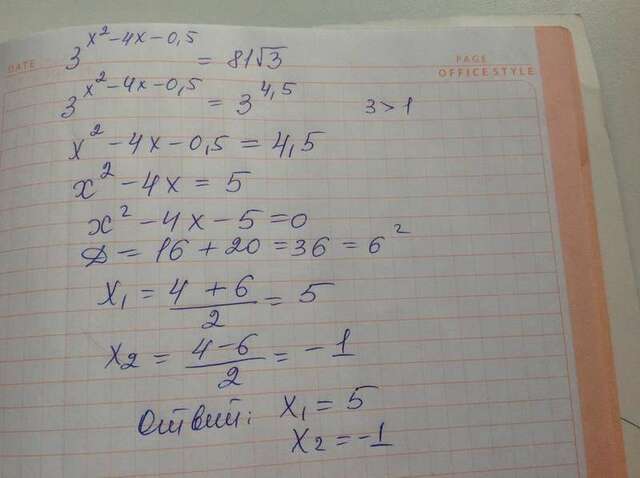 DATE
PAGE
OFFICE STYLE
3^(x²-4x-0,5) = 81√3
3^(x²-4x-0,5) = 3^4,5    3 > 1
x² - 4x - 0,5 = 4,5
x² - 4x = 5
x² - 4x - 5 = 0
D = 16 + 20 = 36 = 6²
x₁ = (4 + 6)/2 = 5
x₂ = (4 - 6)/2 = -1
Ответ: x₁ = 5
x₂ = -1